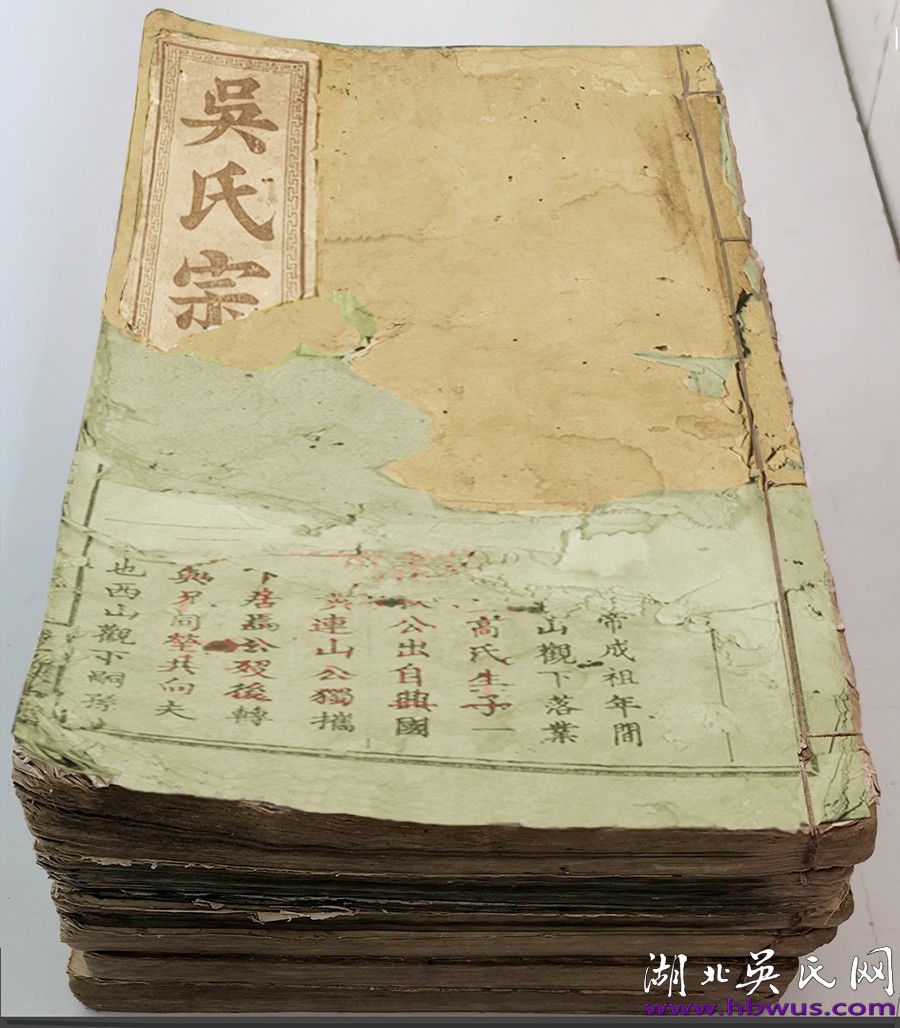 吳氏宗
帝成祖年間
山觀下落業
高氏生子一
公出自興國
吳連山公獨攜
下居焉公歿後轉
與早同塋其向夫
也西山觀下嗣孫
湖北吴氏网
www.hbwus.com